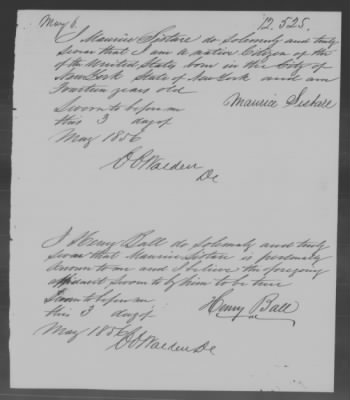 May 6. 12.525.
I Maurice Sistare do solemnly and truly
swear that I am a native Citizen of the
of the United States born in the City of
New York State of New York and am
Fourteen years old
Sworn to before me
Maurice Sistare
this 3 day of
May 1856
D C Warden
De
I Henry Ball do solemnly and truly
swear that Maurice Sistare is personally
known to me and I believe the foregoing
affidavit sworn to by him to be true
Sworn to before me
Henry Ball
this 3 day of
May 1856
De